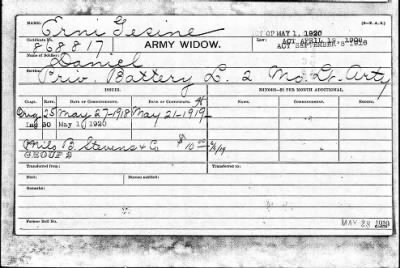 (3—W. & A.)
Erni Gesine
Certificate No. ARMY WIDOW. Law: OF MAY 1, 1920
868817 ACT APRIL 19, 1908
ACT SEPTEMBER 8 1916
Name of Soldier:
Daniel
Service:
Priv. Battery L. 2 Mo. Lt. Arty
ISSUE. MINORS—$2 PER MONTH ADDITIONAL.
Class. Rate. Date of Commencement. Date of Certificate. Name. Commencement. Ending.
Orig 25 May 27-1918 May 21-1919
Inc 30 May 1 1920
Milo B. Stevens & Co $10.00
GROUP 2
Transferred from: Transferred to:
Died: Bureau notified:
Remarks:
Former Roll No. MAY 28 1920